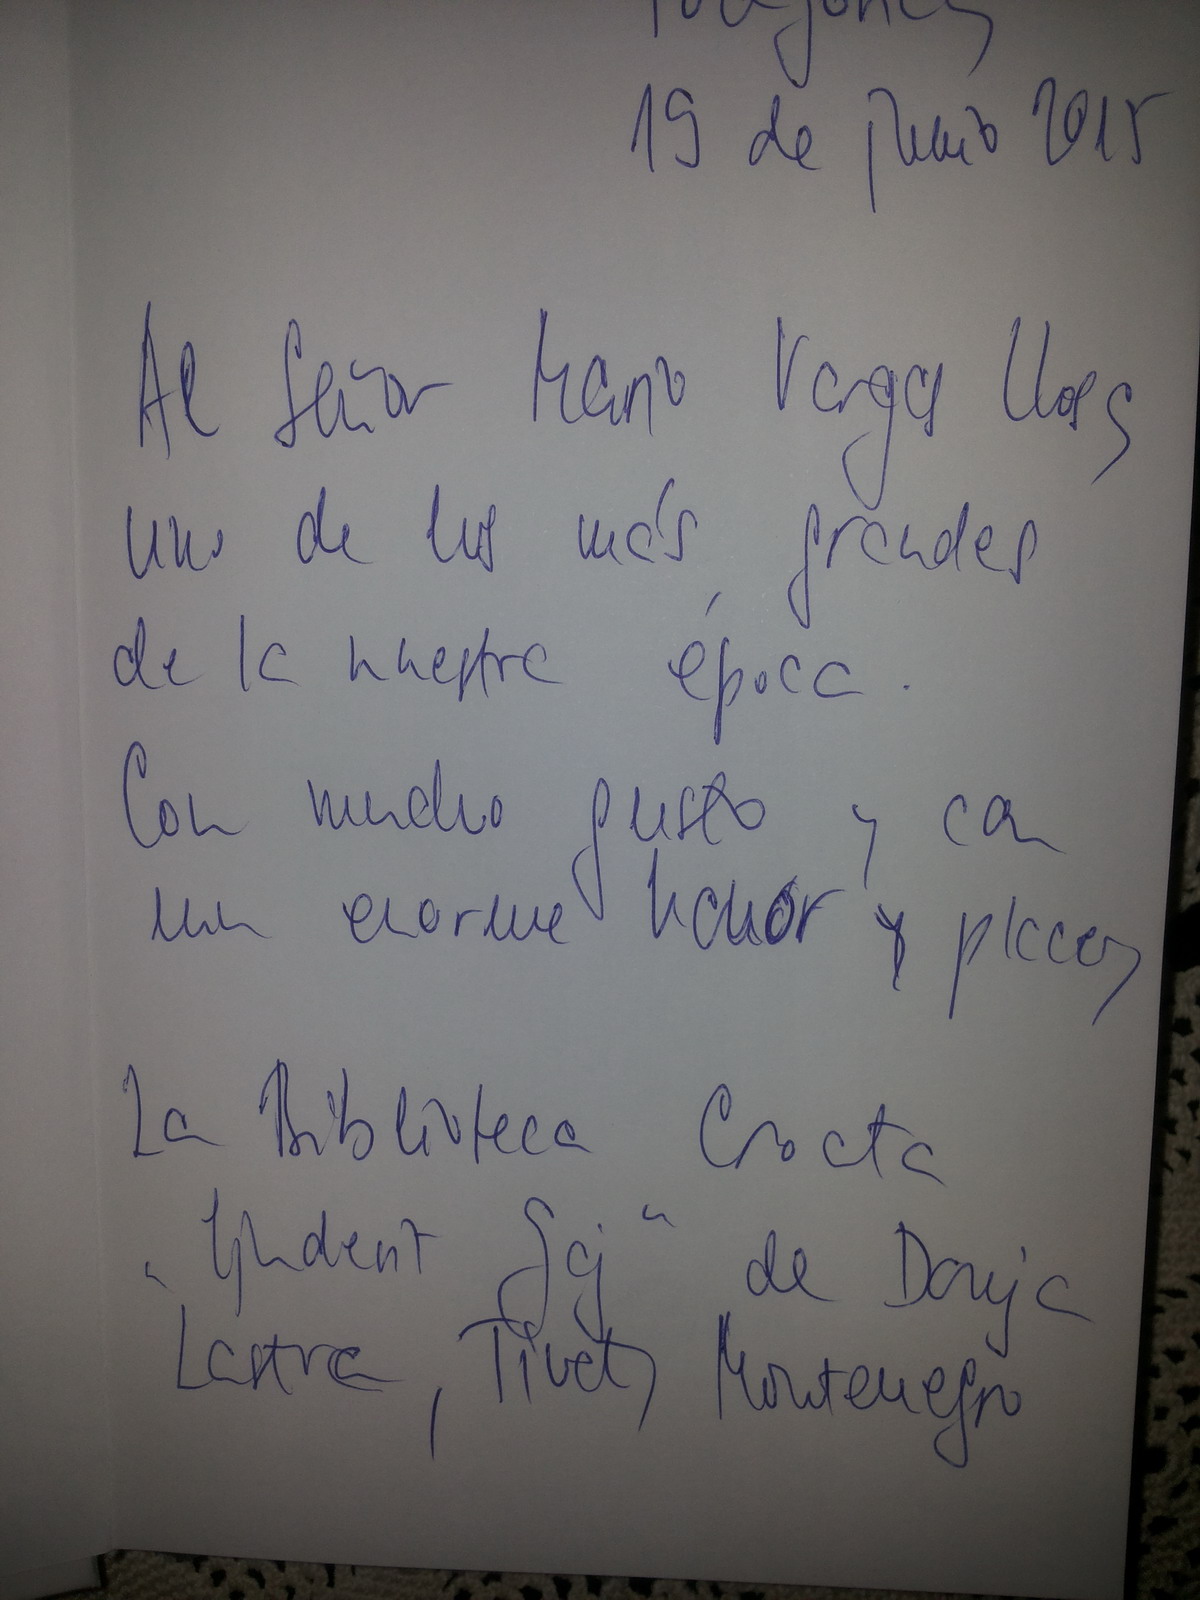 19 de junio 2015
Al Señor Mario Vargas Llosa,
uno de los más grandes
de la nuestra época.
Con mucho gusto y con
un enorme honor y placer,
La Biblioteca Croata
„Ljudevit Gaj“ de Donja
Lastva, Tivat, Montenegro